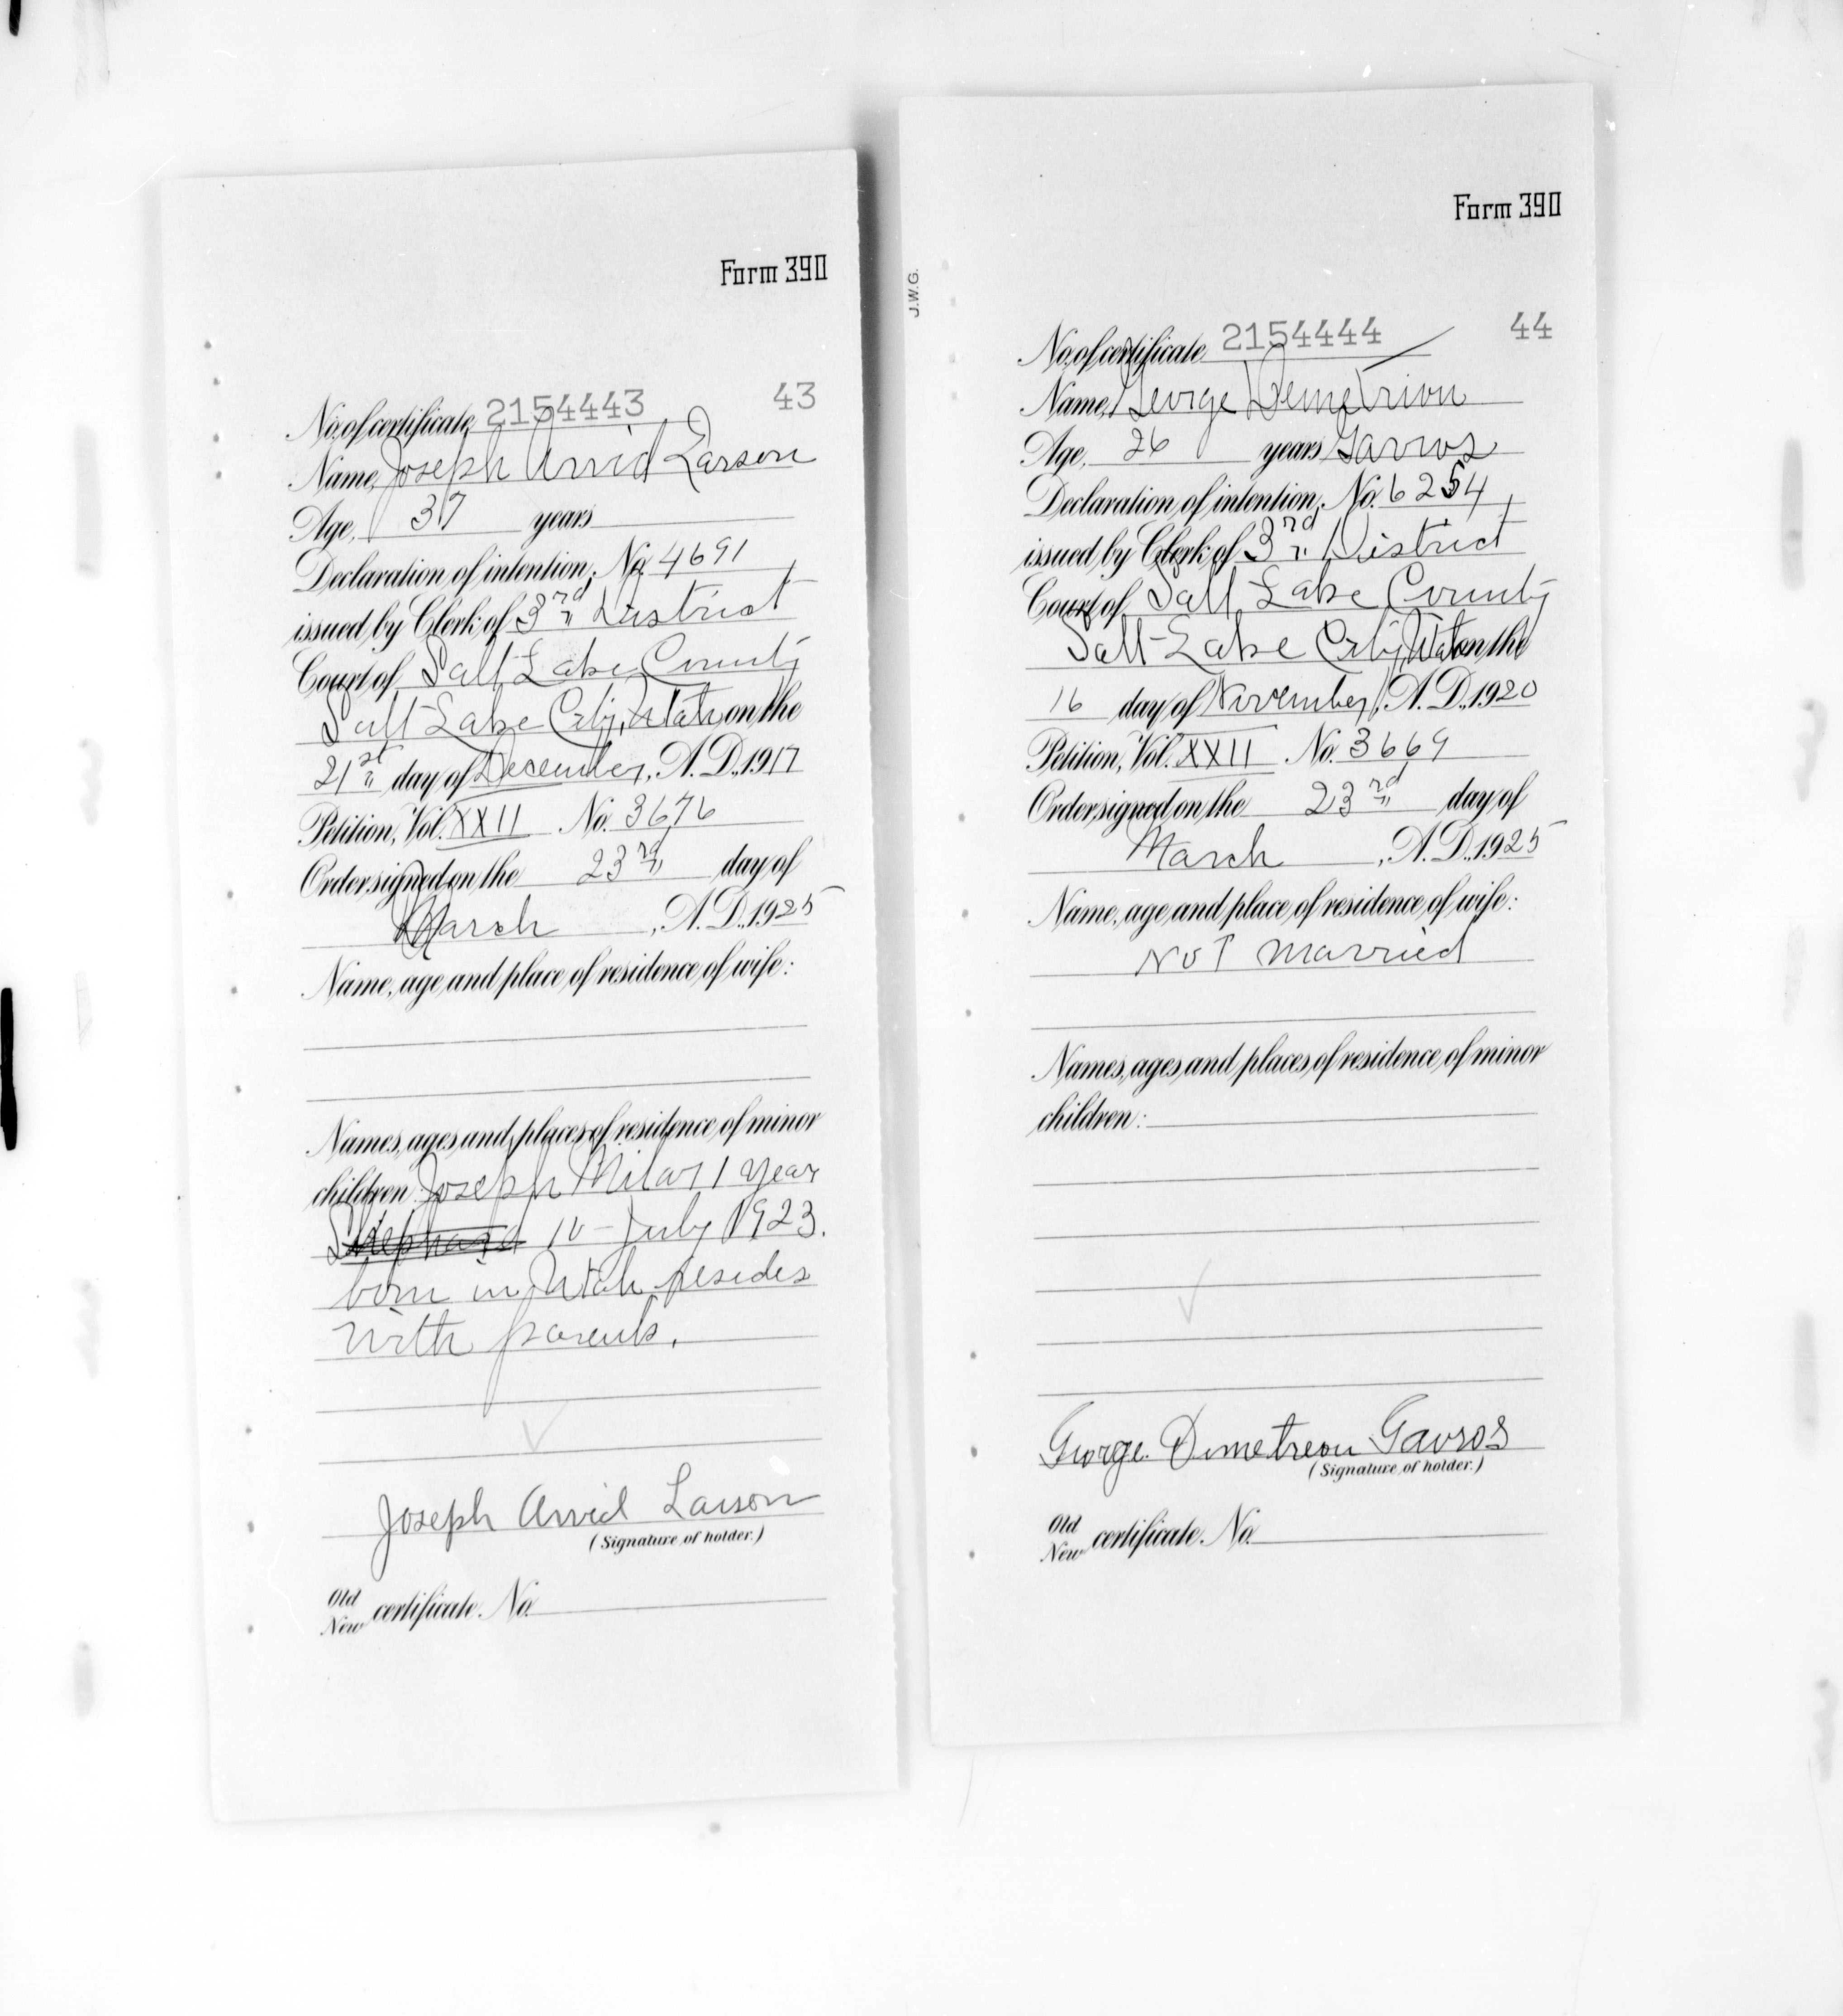 Form 390
No. of certificate 2154443 43
Name, Joseph Arvid Larson
Age, 37 years
Declaration of intention, No. 4691,
issued by Clerk of 3rd District
Court of Salt Lake County
Salt Lake City, Utah on the
21st day of December, A.D., 1917
Petition, Vol. XXII No. 3676
Order signed on the 23rd day of
March, A.D., 1925
Name, age, and place of residence of wife:
Names, ages, and places of residence of minor
children: Joseph 1 year
10 - July 1923.
born in Utah resides
with parents.
Joseph Arvid Larson
(Signature of holder.)
Old
New certificate No.
Form 390
J.W.G.
No. of certificate 2154444 44
Name, George Demetriou
Age, 26 years Gavros
Declaration of intention, No. 6254,
issued by Clerk of 3rd District
Court of Salt Lake County
Salt Lake City, Utah on the
16 day of November, A.D., 1920
Petition, Vol. XXII No. 3669
Order signed on the 23rd day of
March, A.D., 1925
Name, age, and place of residence of wife:
Not married
Names, ages, and places of residence of minor
children:
George Dimetreou Gavros
(Signature of holder.)
Old
New certificate No.